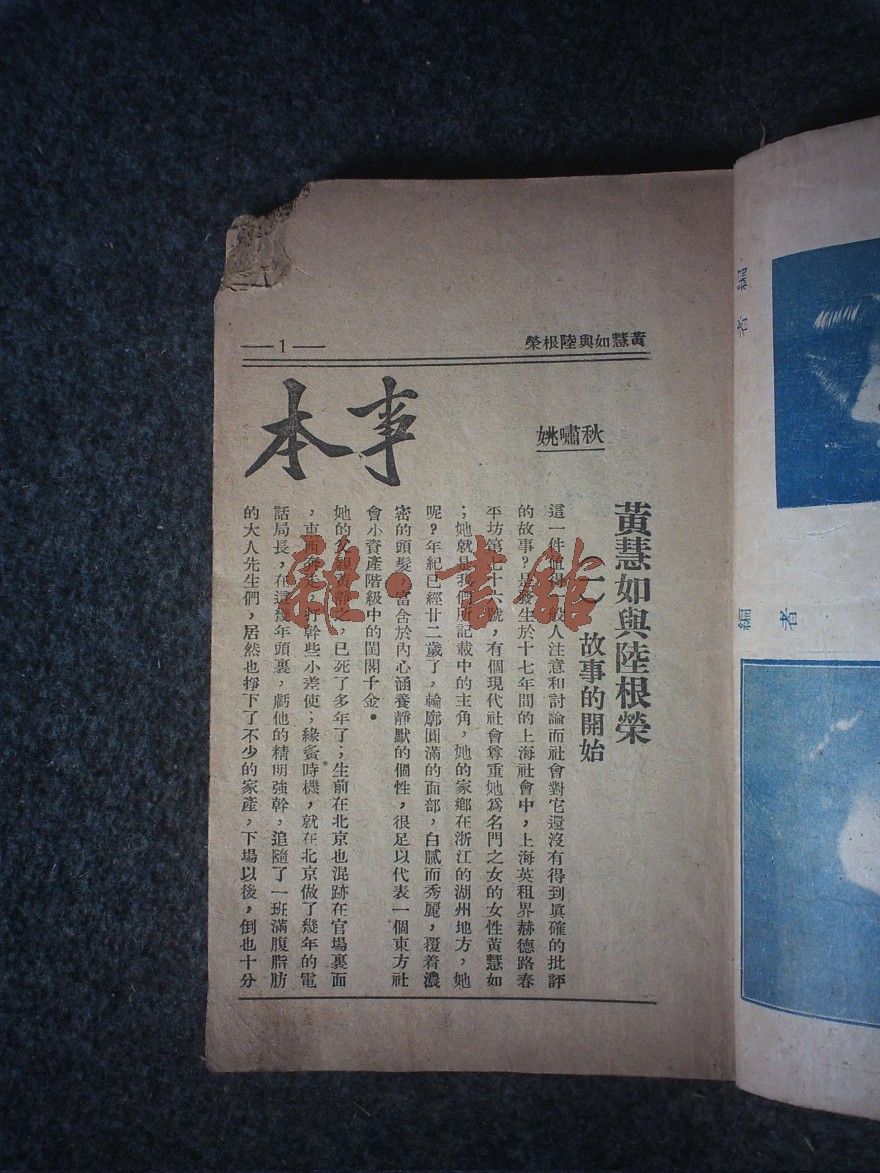 黃慧如與陸根榮
—1—
本事
姚嘯秋
黃慧如與陸根榮
故事的開始
這一件值得一般人注意和討論而社會對它還沒有得到眞確的批評
的故事?是發生於十七年間的上海社會中,上海英租界赫德路春
平坊第七十六號,有個現代社會尊重她爲名門之女的女性黃慧如
;她就是我們所記載中的主角,她的家鄉在浙江的湖州地方,她
呢?年紀已經廿二歲了,輪廓圓滿的面部,白膩而秀麗,覆着濃
密的頭髮,富含於內心涵養靜默的個性,很足以代表一個東方社
會小資產階級中的閨閣千金。
她的父親黃靜之,已死了多年了;生前在北京也混跡在官場裏面
,東西奔走,打幹些小差使;緣着時機,就在北京做了幾年的電
話局長,在這幾年頭裏,虧他的精明強幹,追隨了一班滿腹脂肪
的大人先生們,居然也掙下了不少的家產,下場以後,倒也十分
雜·書館
編者
編者